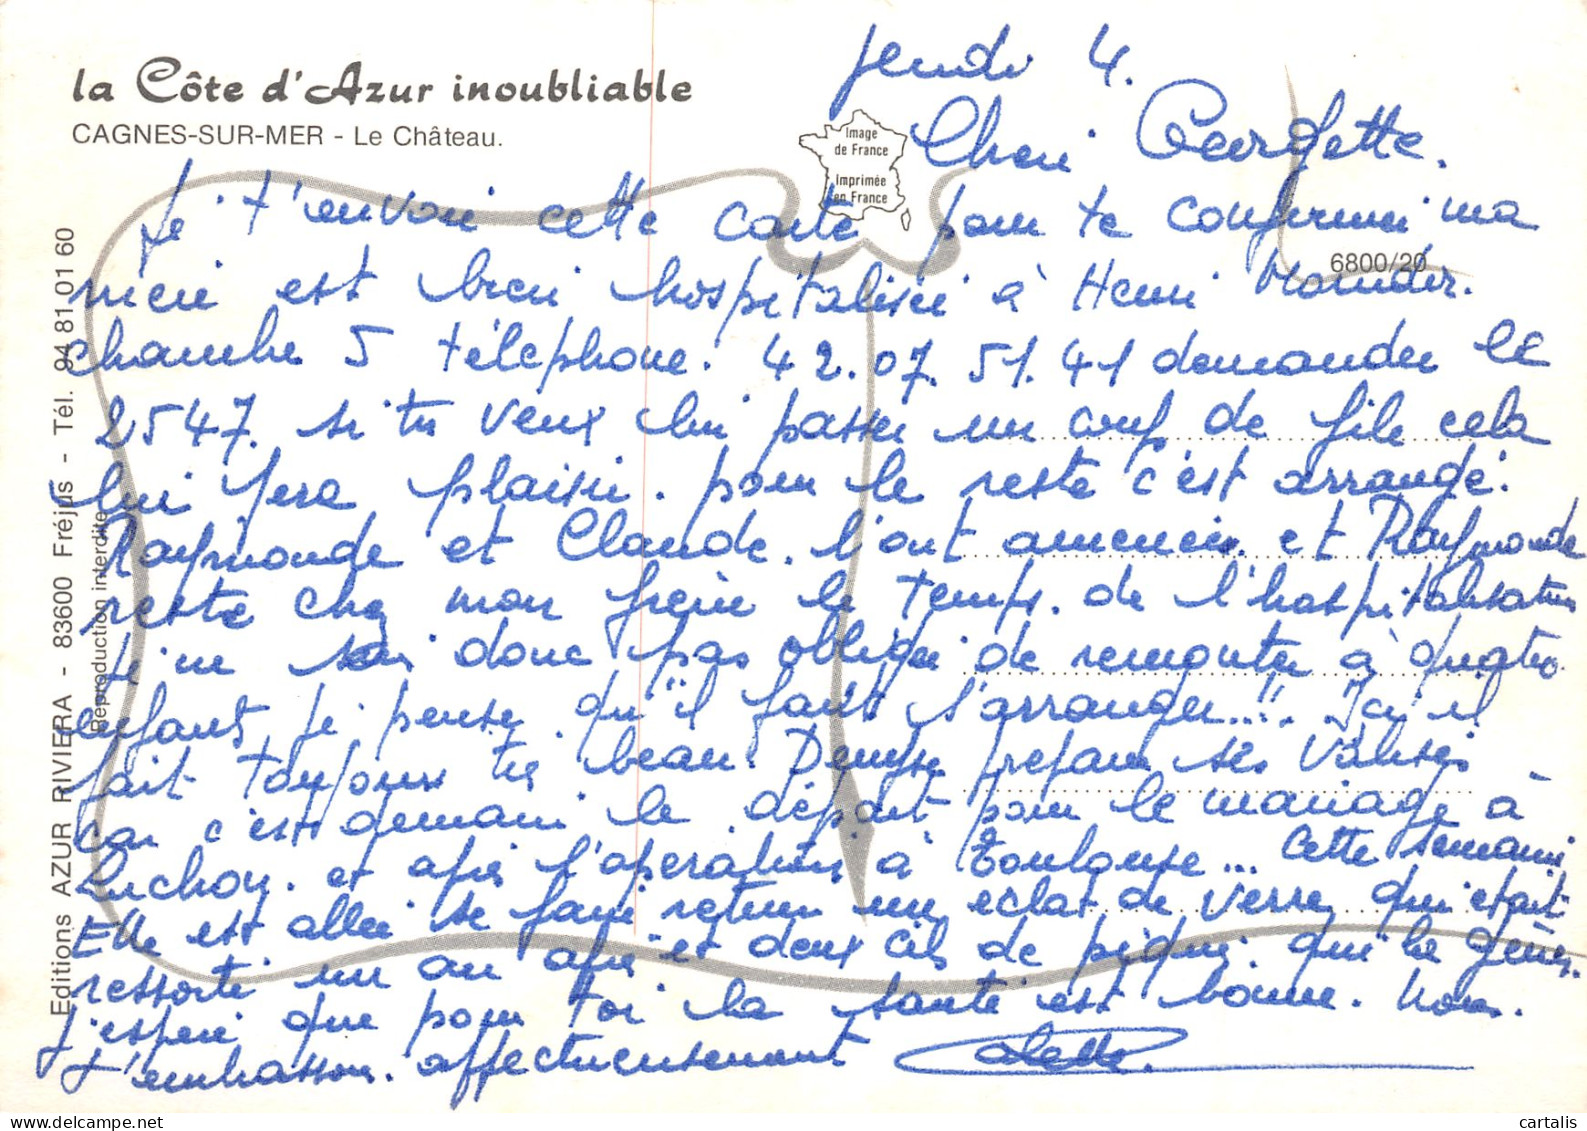 la Côte d'Azur inoubliable
CAGNES-SUR-MER - Le Château.
Image
de France
Imprimée
en France
6800/20
Editions AZUR RIVIERA - 83600 Fréjus - Tél. 94 81 01 60
Reproduction interdite
jeudi 4.
Cheri Georgette.
Je t'envoi cette carte pour te confirmer ma
mère est bien hospitalisée à Henri Mondor.
chambre 5 téléphone. 42.07.51.41 demander le
2547. si tu veux lui passer un coup de file cela
lui fera plaisir. pour le reste c'est arrangé.
Raymonde et Claude. l'ont amener. et Raymonde
reste chez mon frère le temps. de l'hospitalisation
je ne suis donc pas obligée de remonter à quatre
enfants, je pense qu'il faut s'arranger..!!. Ici il
fait toujours très beau. Denyse prépare ses valises
car c'est demain le départ pour le mariage à
Luchon. et après l'opération à Toulouse... Cette semaine
Elle est allée se faire retirer un éclat de verre qui était
ressorti un an après et deux cils de piqué qui la gêner.
J'espère que pour toi la santé est bonne. Nous
t'embrassons. affectueusement Colette